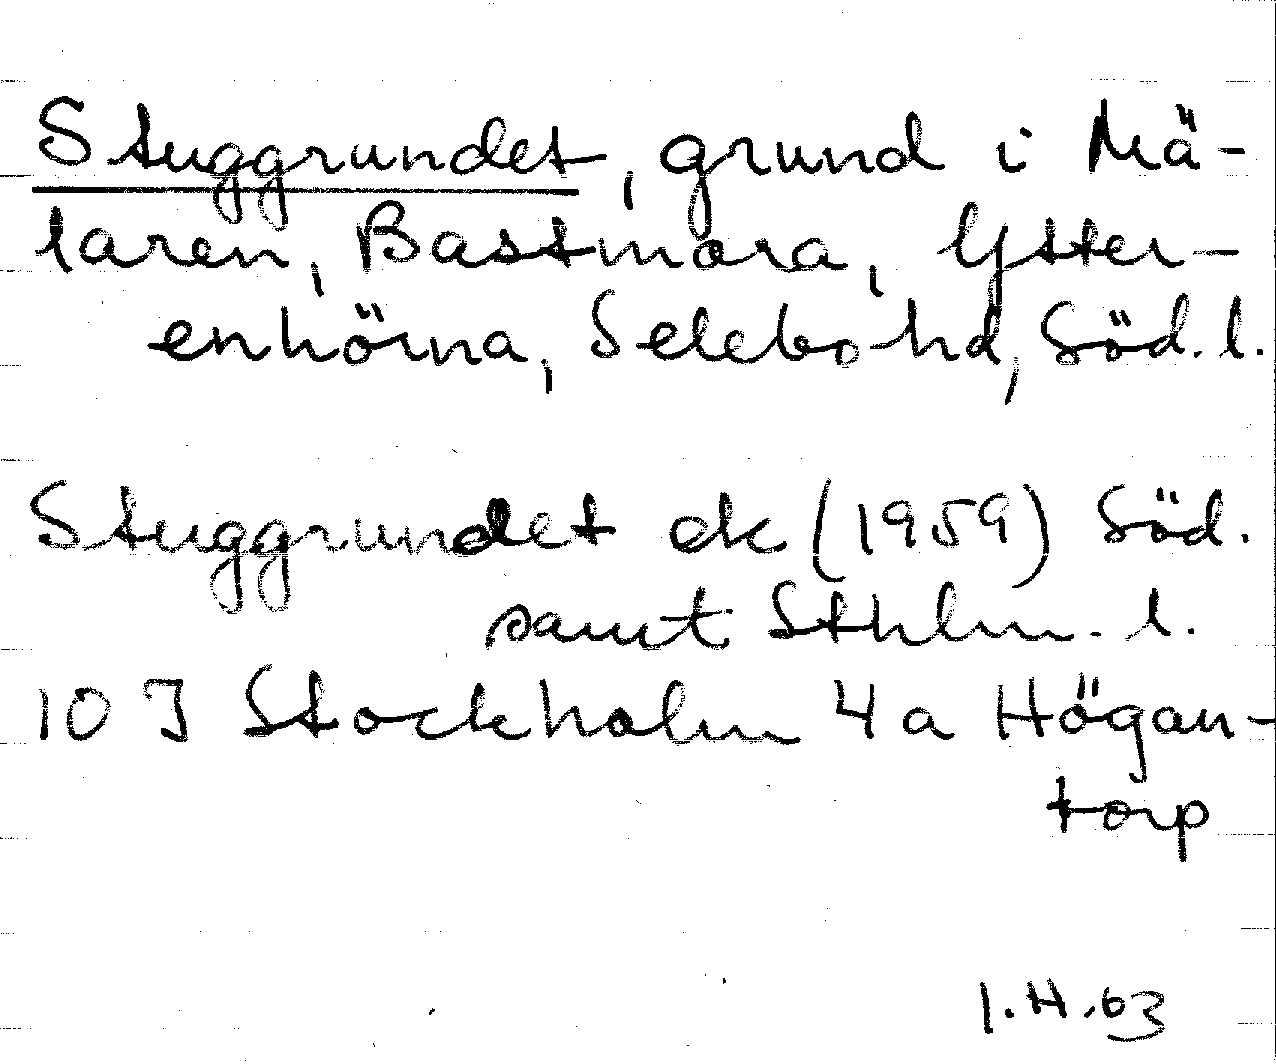 Stuggrundet, grund i Mä-
laren, Bastmora, Ytter-
enhörna, Selebo hd, Söd. l.
Stuggrundet ek (1959) Söd.
samt Sthlm. l.
10 I Stockholm 4 a Högan-
torp
I.H.63